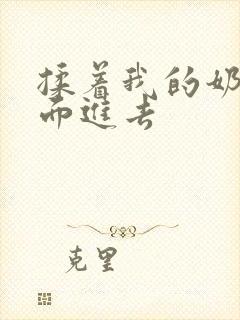 揉着我的奶
而进去
克里